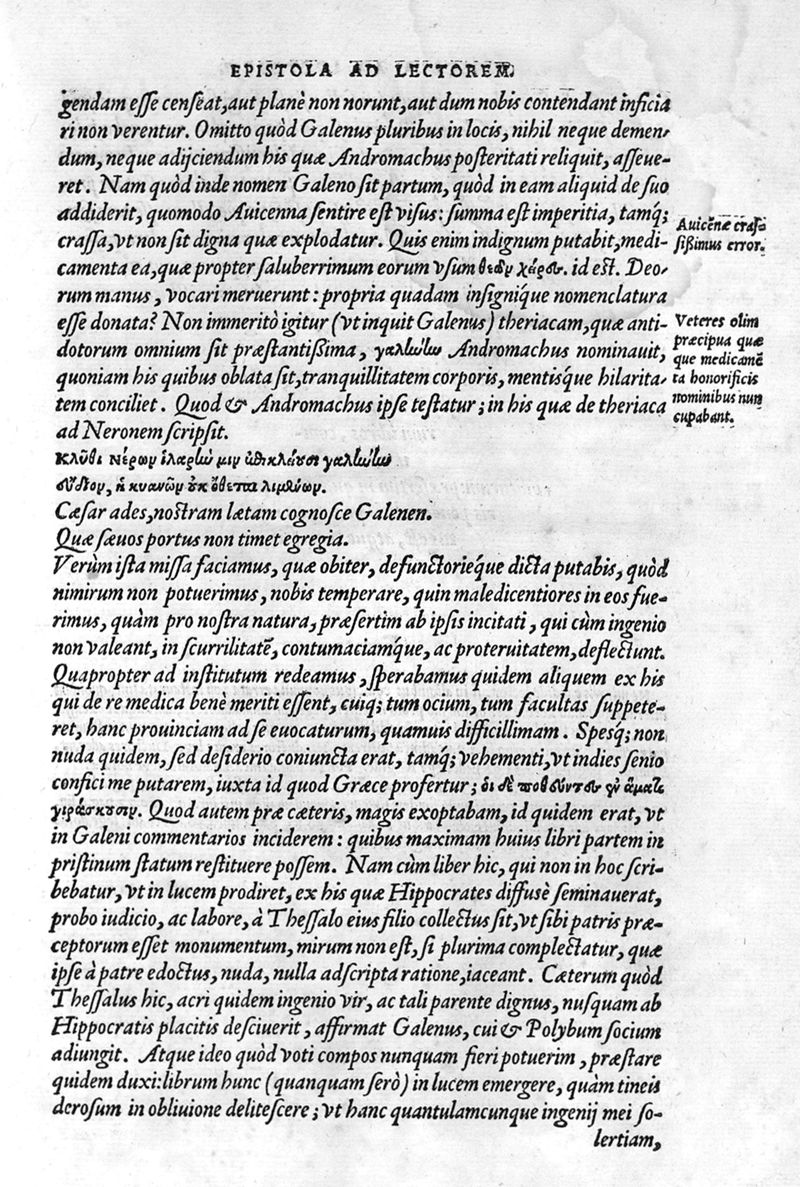 EPISTOLA AD LECTOREM.
gendam esse censeat, aut planè non norunt, aut dum nobis contendant inficia
ri non verentur. Omitto quòd Galenus pluribus in locis, nihil neque demen-
dum, neque adijciendum his quæ Andromachus posteritati reliquit, asseue-
ret. Nam quòd inde nomen Galeno sit partum, quòd in eam aliquid de suo
addiderit, quomodo Auicenna sentire est visus: summa est imperitia, tamq́;
crassa, vt non sit digna quæ explodatur. Quis enim indignum putabit, medi-
Auicēnæ cras-
sißimus error.
camenta ea, quæ propter saluberrimum eorum vsum θεῶν χάρας. id est. Deo-
rum manus, vocari meruerunt: propria quadam insigniq́ue nomenclatura
esse donata? Non immeritò igitur (vt inquit Galenus) theriacam, quæ anti-
dotorum omnium sit præstantißima, γαλήνην Andromachus nominauit,
quoniam his quibus oblata sit, tranquillitatem corporis, mentisq́ue hilarita-
tem conciliet. Quod & Andromachus ipse testatur; in his quæ de theriaca
ad Neronem scripsit.
Veteres olim
præcipua quæ
que medicamē
ta honorificis
nominibus nun
cupabant.
Κλῦθι Νέρων ἱλαρὴν μιν γαλήνην
Cæsar ades, nostram lætam cognosce Galenen.
Quæ sæuos portus non timet egregia.
Verùm ista missa faciamus, quæ obiter, defunctorieq́ue dicta putabis, quòd
nimirum non potuerimus, nobis temperare, quin maledicentiores in eos fue-
rimus, quàm pro nostra natura, præsertim ab ipsis incitati, qui cùm ingenio
non valeant, in scurrilitatē, contumaciamq́ue, ac proteruitatem, deflectunt.
Quapropter ad institutum redeamus, sperabamus quidem aliquem ex his
qui de re medica benè meriti essent, cuiq; tum ocium, tum facultas suppete-
ret, hanc prouinciam ad se euocaturum, quamuis difficillimam. Spesq́; non
nuda quidem, sed desiderio coniuncta erat, tamq́; vehementi, vt indies senio
confici me putarem, iuxta id quod Græce profertur; οἱ δὲ ποθοῦντες ἐν ἅματι
γηράσκουσιν. Quod autem præ cæteris, magis exoptabam, id quidem erat, vt
in Galeni commentarios inciderem: quibus maximam huius libri partem in
pristinum statum restituere possem. Nam cùm liber hic, qui non in hoc scri-
bebatur, vt in lucem prodiret, ex his quæ Hippocrates diffusè seminauerat,
probo iudicio, ac labore, à Thessalo eius filio collectus sit, vt sibi patris præ-
ceptorum esset monumentum, mirum non est, si plurima complectatur, quæ
ipse à patre edoctus, nuda, nulla adscripta ratione, iaceant. Cæterum quòd
Thessalus hic, acri quidem ingenio vir, ac tali parente dignus, nusquam ab
Hippocratis placitis desciuerit, affirmat Galenus, cui & Polybum socium
adiungit. Atque ideo quòd voti compos nunquam fieri potuerim, præstare
quidem duxi: librum hunc (quanquam serò) in lucem emergere, quàm tineis
derosum in obliuione delitescere; vt hanc quantulamcunque ingenij mei so-
lertiam,